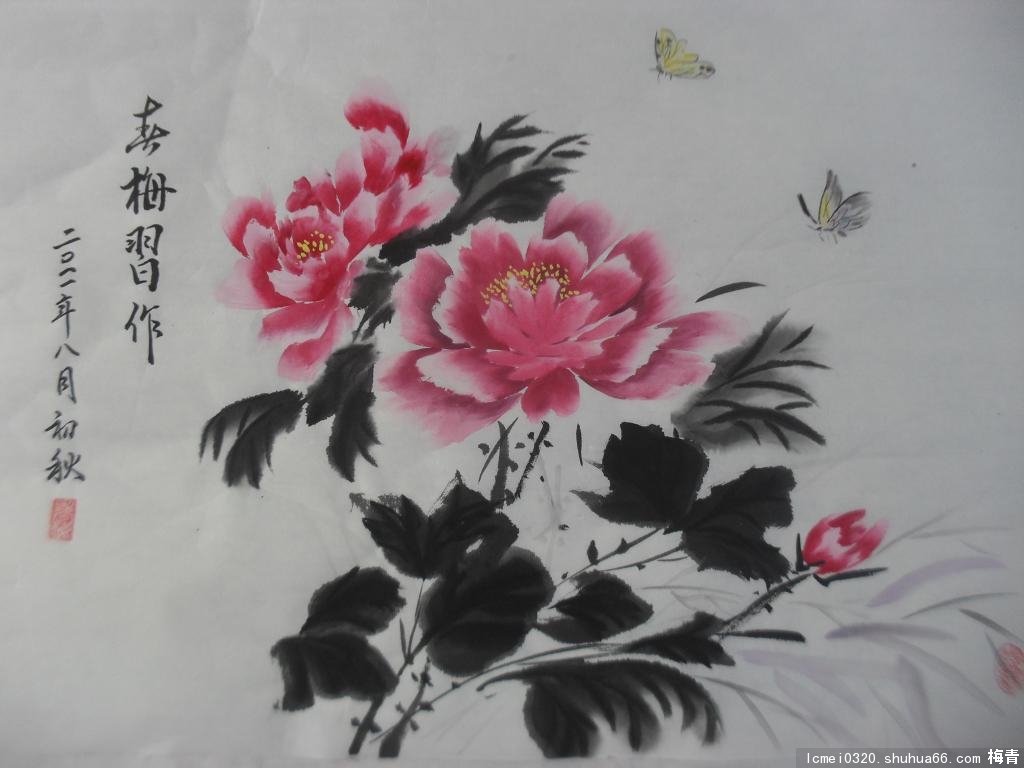 春梅習作
二〇一一年八月初秋
lcmei0320.shuhua66.com 梅青